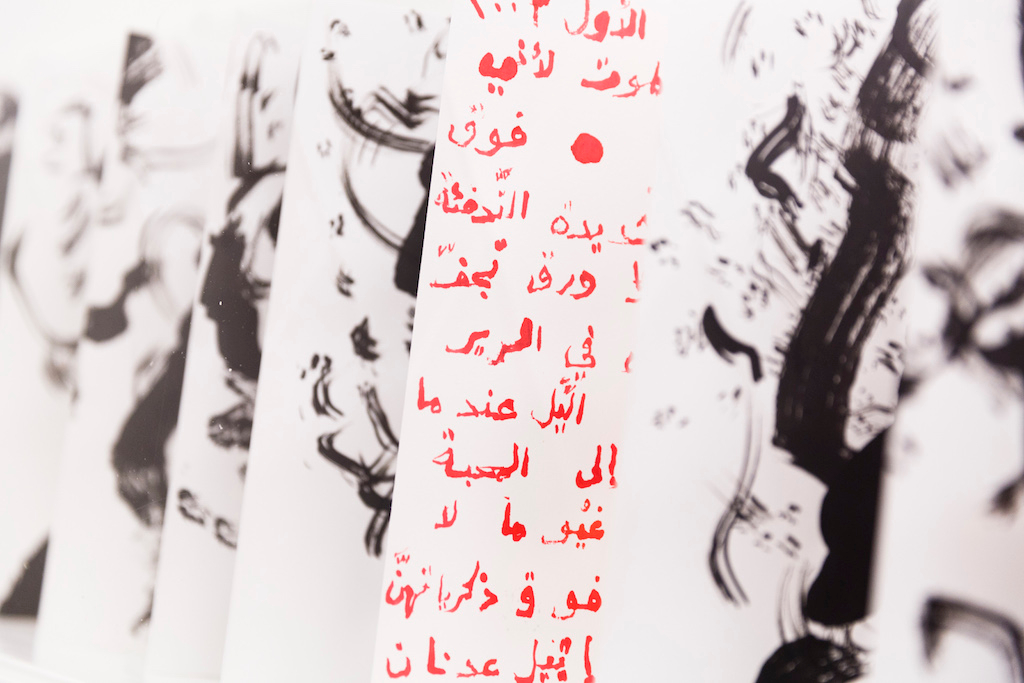 الأول ٢٠٠٣
لموت لأني
فوق
يدة التّدفئة
ورق تجفّ
في الحرير
اللّيل عند ما
إلى المحبة
غيو ما لا
فو ق ذكرياتهنّ
إيتيل عدنان